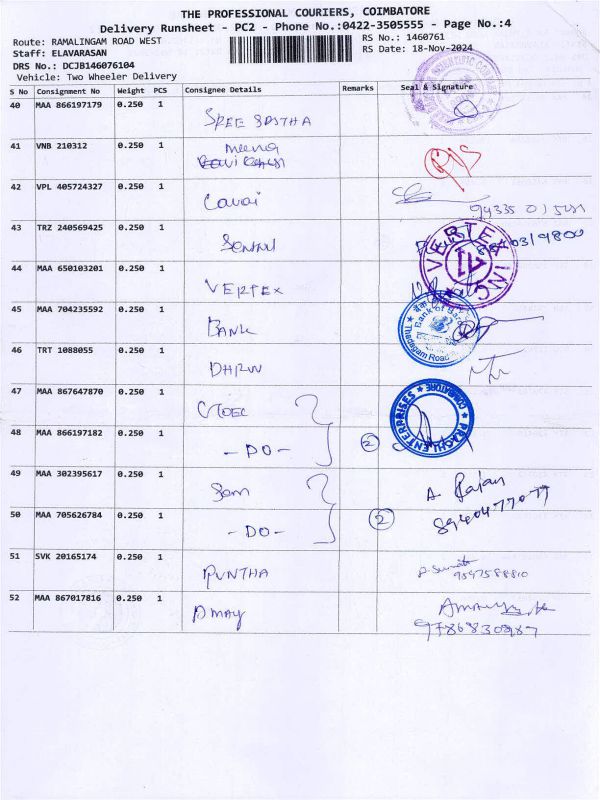 THE PROFESSIONAL COURIERS, COIMBATORE
Delivery Runsheet - PC2 - Phone No.:0422-3505555 - Page No.:4
Route: RAMALINGAM ROAD WEST
RS No.: 1460761
Staff: ELAVARASAN
RS Date: 18-Nov-2024
DRS No.: DCJB146076104
Vehicle: Two Wheeler Delivery
S No Consignment No Weight PCS Consignee Details Remarks Seal & Signature
40 MAA 866197179 0.250 1 SREE SASTHA
41 VNB 210312 0.250 1 Meena
42 VPL 405724327 0.250 1
43 TRZ 240569425 0.250 1
44 MAA 650103201 0.250 1 VERTEX
VERTEX INC
45 MAA 704235592 0.250 1 BANK
Bank of
Road
46 TRT 1088055 0.250 1
47 MAA 867647870 0.250 1
48 MAA 866197182 0.250 1 -DO- 2
PRAGHI ENTERPRISES COIMBATORE
49 MAA 302395617 0.250 1
A Rajan
50 MAA 705626784 0.250 1 -DO- 2 8940477077
51 SVK 20165174 0.250 1 PUNTHA
52 MAA 867017816 0.250 1 AMAY